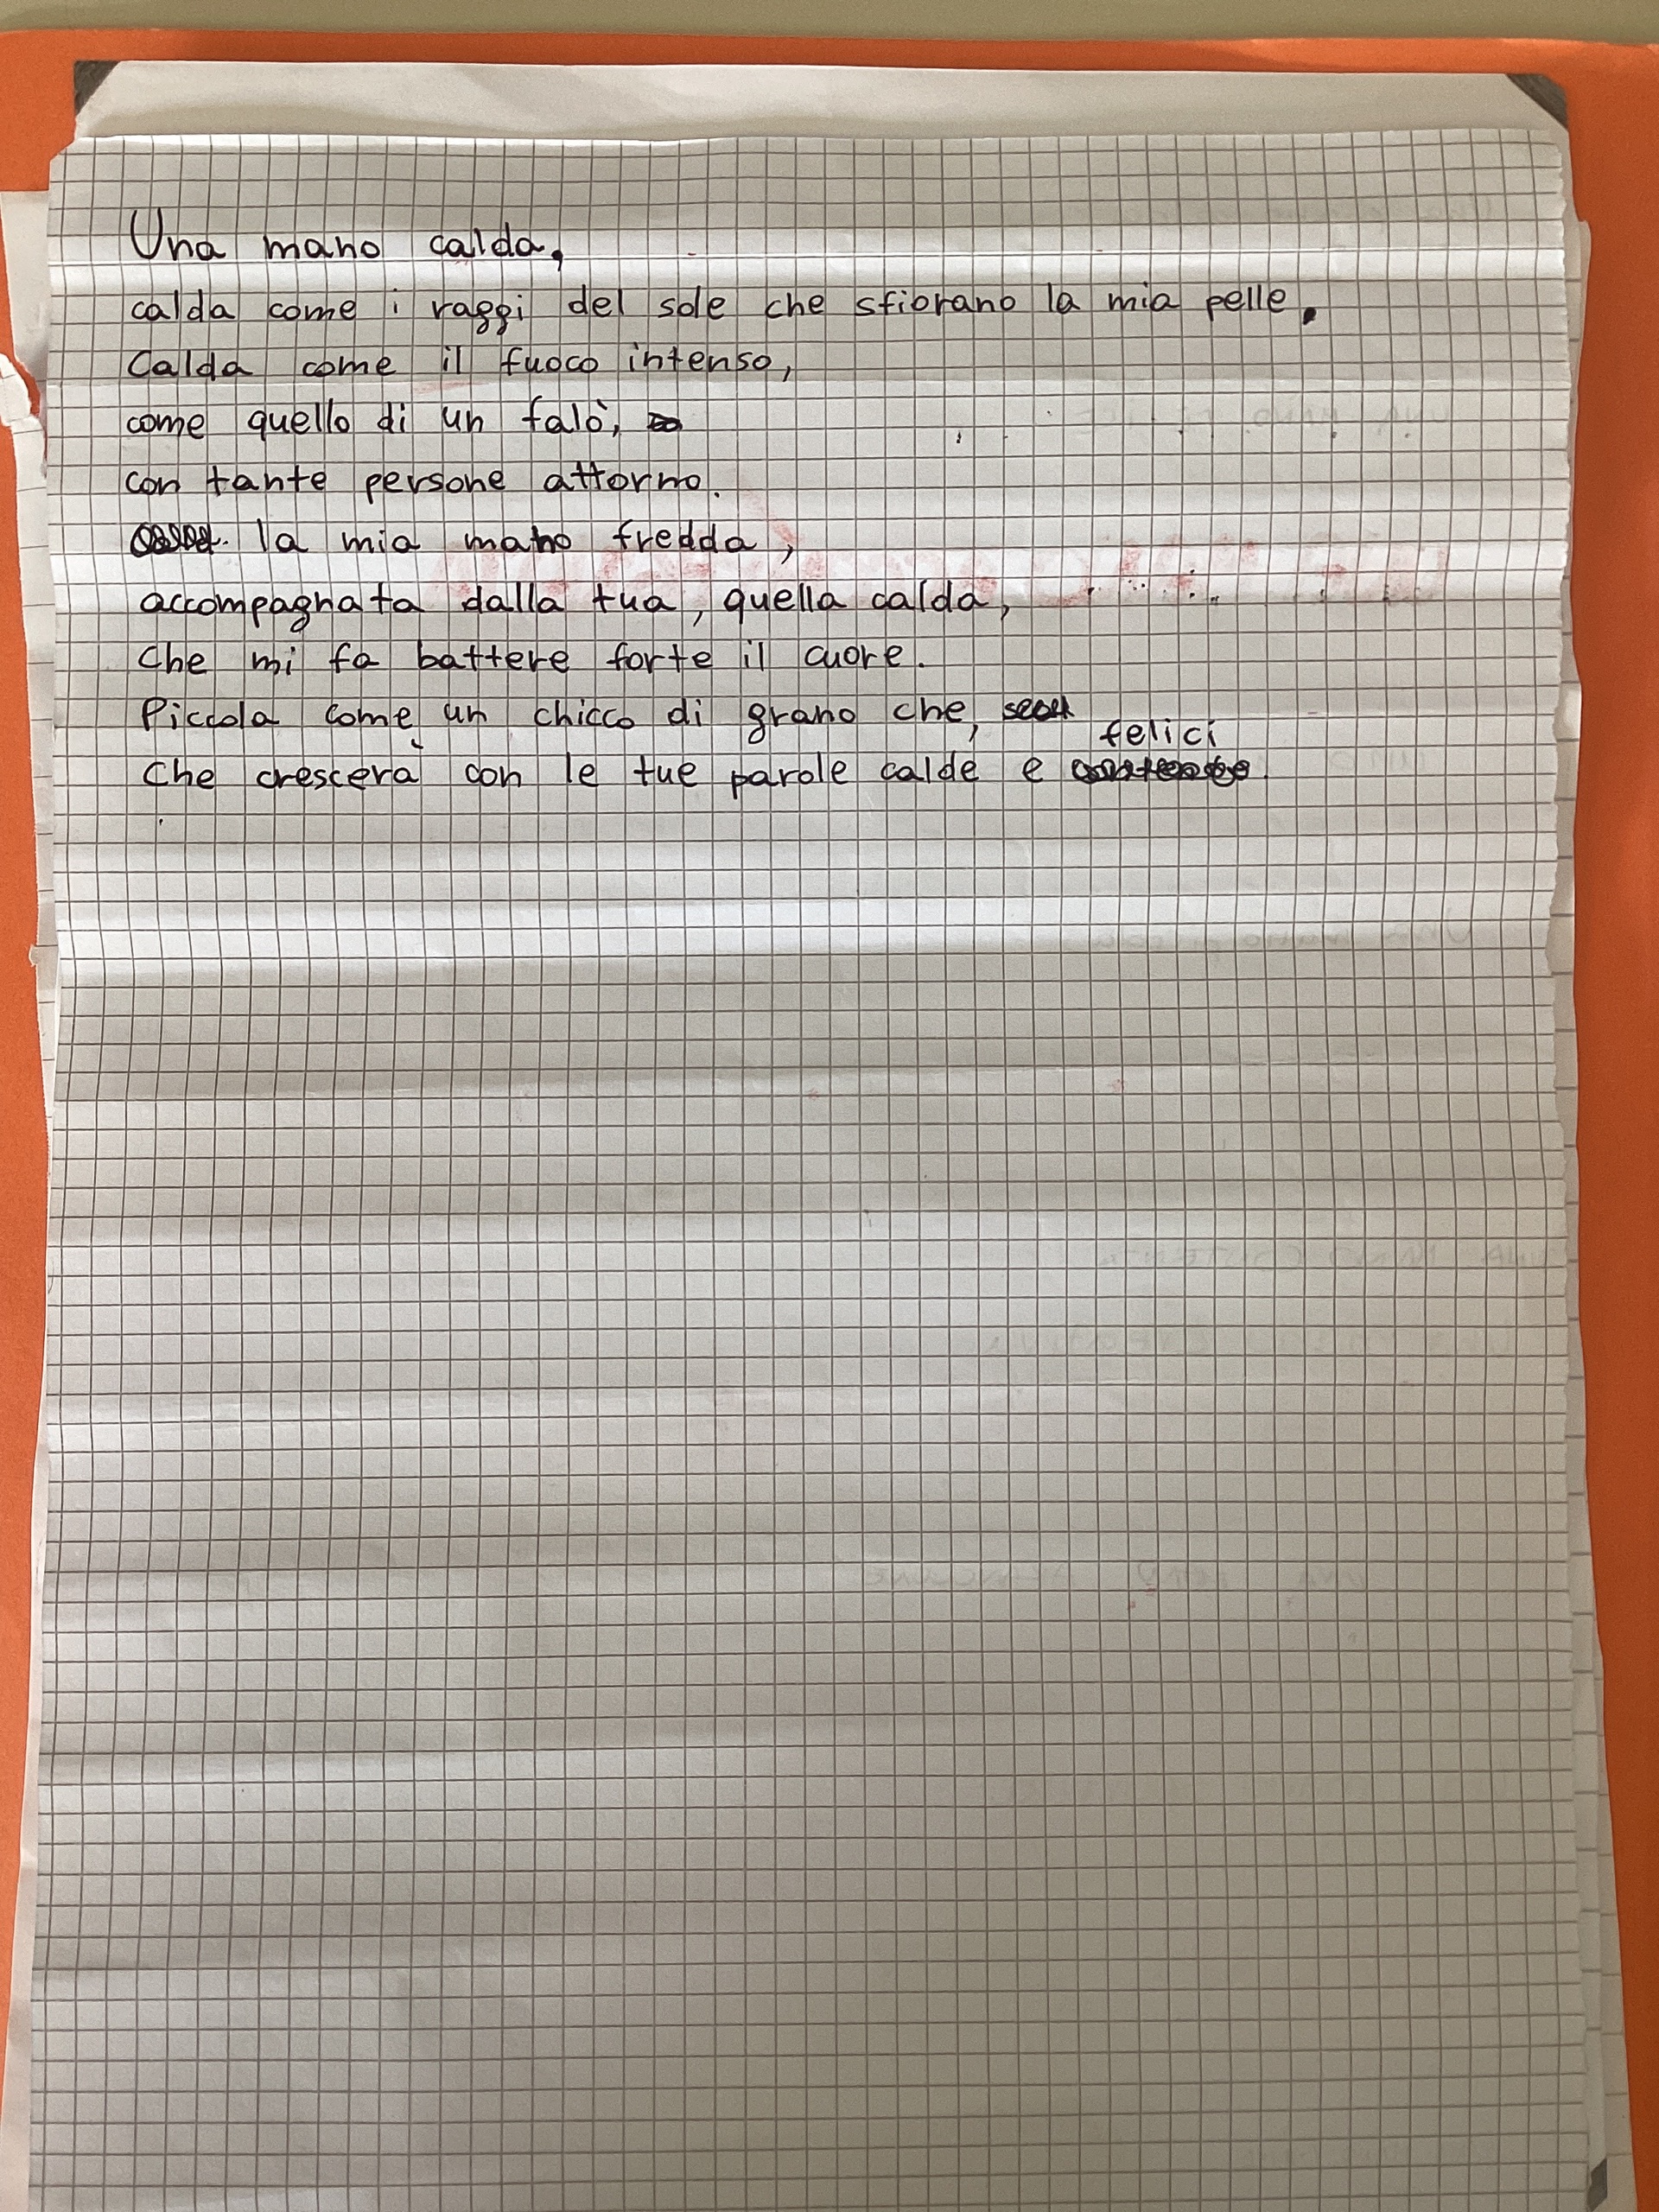 Una mano calda,
calda come i raggi del sole che sfiorano la mia pelle.
Calda come il fuoco intenso,
come quello di un falò,
con tante persone attorno.
la mia mano fredda,
accompagnata dalla tua, quella calda,
Che mi fa battere forte il cuore.
Piccola come un chicco di grano che,
felici
Che crescerà con le tue parole calde e